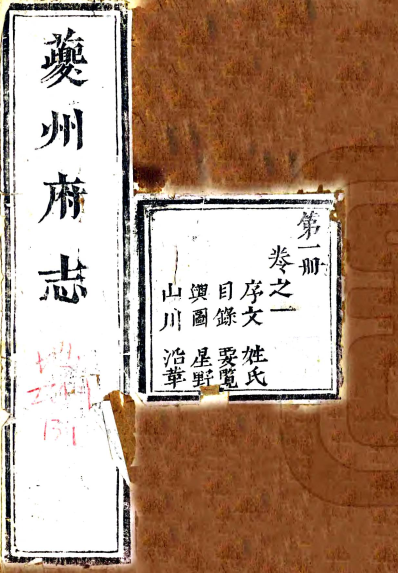 夔州府志
第一冊
卷之一
序文 姓氏
目錄 要覽
輿圖 星野
山川 沿革
131